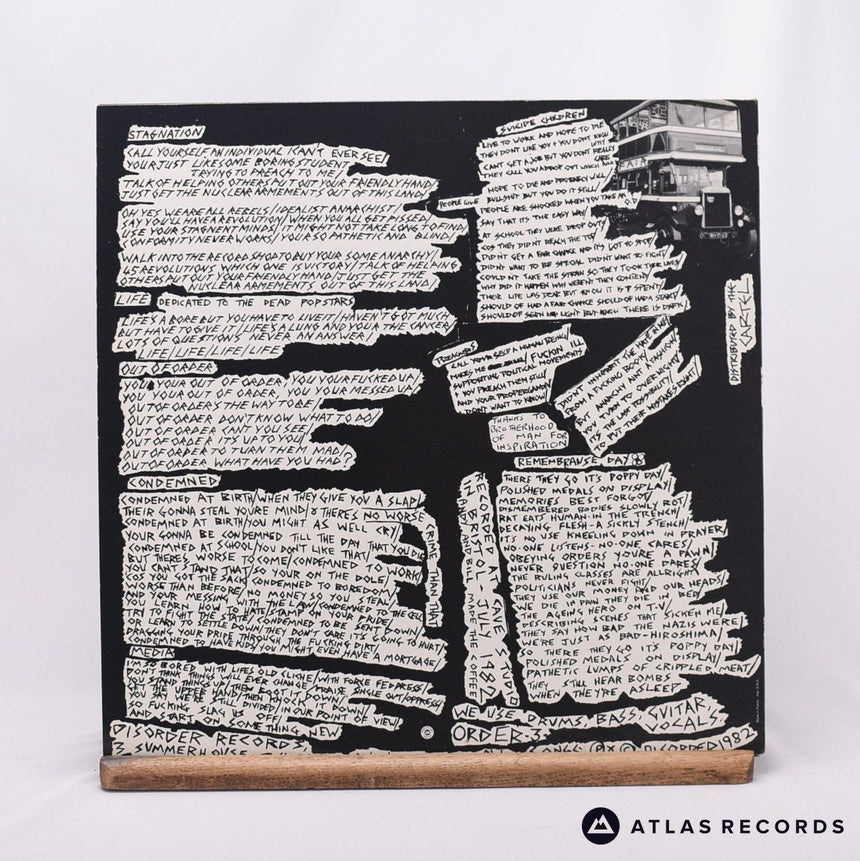 STAGNATION
CALL YOURSELF AN INDIVIDUAL I CAN'T EVER SEE/
YOUR JUST LIKE SOME BORING STUDENT
TRYING TO PREACH TO ME/
TALK OF HELPING OTHERS PUT OUT YOUR FRIENDLY HAND/
JUST GET THE NUCLEAR ARMEMENTS OUT OF THIS LAND/
OH YES WE ARE ALL REBELS/IDEALIST ANARCHIST/
SAY YOU'LL HAVE A REVOLUTION/WHEN YOU ALL GET PISSED/
USE YOUR STAGNENT MINDS/IT MIGHT NOT TAKE LONG TO FIND/
CONFORMITY NEVER WORKS/YOUR SO PATHETIC AND BLIND/
WALK INTO THE RECORD SHOP TO BUY YOUR SOME ANARCHY/
45 REVOLUTIONS WHICH ONE IS VICTORY/TALK OF HELPING
OTHERS PUT OUT YOUR FRIENDLY HAND/JUST GET THE
NUCLEAR ARMEMENTS OUT OF THIS LAND/
LIFE DEDICATED TO THE DEAD POPSTARS
LIFE'S A BORE BUT YOU HAVE TO LIVE IT/HAVEN'T GOT MUCH
BUT HAVE TO GIVE IT/LIFE'S A LUNG AND YOUR THE CANCER/
LOTS OF QUESTIONS NEVER AN ANSWER/
LIFE/LIFE/LIFE/LIFE
OUT OF ORDER
YOU YOUR OUT OF ORDER, YOU YOUR FUCKED UP/
YOU YOUR OUT OF ORDER, YOU YOUR MESSED UP/
OUT OF ORDER'S THE WAY TO BE
OUT OF ORDER DON'T KNOW WHAT TO DO/
OUT OF ORDER CAN'T YOU SEE
OUT OF ORDER ITS UP TO YOU/
OUT OF ORDER TO TURN THEM MAD/
OUT OF ORDER WHAT HAVE YOU HAD?
CONDEMNED
CONDEMNED AT BIRTH/WHEN THEY GIVE YOU A SLAP/
THEIR GONNA STEAL YOURE MIND/& THERE'S NO WORSE CRIME THAN THAT
CONDEMNED AT BIRTH/YOU MIGHT AS WELL CRY/
YOUR GONNA BE CONDEMNED TILL THE DAY THAT YOU DIE
CONDEMNED AT SCHOOL/YOU DON'T LIKE THAT/
BUT THERE'S WORSE TO COME/CONDEMNED TO WORK/
YOU CAN'T STAND THAT/SO YOUR ON THE DOLE/
COS YOU GOT THE SACK/CONDEMNED TO BOREDOM/
WORSE THAN BEFORE/NO MONEY SO YOU STEAL/
AND YOUR MESSING/WITH THE LAW/CONDEMNED TO THE CELL
YOU LEARN HOW TO HATE/STAMP ON YOUR PRIDE
TRY TO FIGHT THE STATE/CONDEMNED TO BE SENT DOWN/
OR LEARN TO SETTLE DOWN/THEY DON'T CARE ITS GOING TO HURT/
DRAGGING YOUR PRIDE THROUGH THE FUCKING DIRT/
CONDEMNED TO HAVE KIDS/YOU MIGHT EVEN HAVE A MORTGAGE/
MEDIA
I'M SO BORED WITH LIFES OLD CLICHE/WITH FORCE FED PRESS/
DON'T THINK THINGS WILL EVER CHANGE/PRAISE SINGLE OUT/OPPRESS/
YOU STAND THINGS UP THEN BOOT IT DOWN/
GET THE UPPER HAND THEN KNOCK IT DOWN/
YOU SAY WE'RE STILL DIVIDED/IN OUR POINT OF VIEW/
SO FUCKING SLAG US OFF/
AND START ON SOMETHING NEW
DISORDER RECORDS,
3, SUMMERHOUSE
SUICIDE CHILDREN
LIVE TO WORK AND HOPE TO DIE
THEY DONT LIKE YOU & YOU DONT KNOW WHY
CANT GET A JOB BUT YOU DONT REALLY CARE
THEY CALL YOU ABOUT
HOPE TO DIE AND PROBABLY WILL
PEOPLE GIVE BULLSHIT BUT YOU DO IT STILL
PEOPLE ARE SHOCKED WHEN YOU TAKE AN O.D
SAY THAT ITS THE EASY WAY
AT SCHOOL THEY DROP OUT
COS THEY DIDNT REACH THE TOP
DIDNT GET A FAIR CHANCE AND ITS GOT TO STOP
DIDNT WANT TO BE SPECIAL DIDNT WANT TO FIGHT
COULDN'T TAKE THE STRAIN SO THEY TOOK THEIR LIFE
WHY DID IT HAPPEN WHY WERENT THEY CONTENT
THEIR LIFE WAS DEAR BUT NOW IT IS SPENT
SHOULD OF HAD A FAIR CHANCE SHOULD OF HAD A START
SHOULD OF SEEN LIGHT BUT THERE IS DARK
DISTRIBUTED BY THE
CARTEL
PREACHERS
CALL YOURSELF A HUMAN BEING/
MAKES ME FUCKIN ILL
SUPPORTING POLITICAL MOVEMENTS
YOU PREACH THEM STILL/
AND YOUR PROPERGANDA
I DONT WANT TO KNOW/
THANKS TO
BROTHERHOOD
OF MAN FOR
INSPIRATION
REMEMBRANSE DAY
THERE THEY GO IT'S POPPY DAY/
POLISHED MEDALS ON DISPLAY/
MEMORIES BEST FORGOT/
DISMEMBERED BODIES SLOWLY ROT/
RAT EATS HUMAN IN THE TRENCH/
DECAYING FLESH-A SICKLY STENCH/
IT'S NO USE KNEELING DOWN IN PRAYER/
NO-ONE LISTENS-NO-ONE CARES/
OBEYING ORDERS YOU'RE A PAWN/
NEVER QUESTION NO-ONE DARES/
THE RULING CLASSES ARE ALLRIGHT/
POLITICIANS NEVER FIGHT/
THEY USE OUR MONEY AND OUR HEADS/
WE DIE IN PAIN THEY DIE IN BED/
THE AGEING HERO ON T.V/
DESCRIBING SCENES THAT SICKEN ME/
THEY SAY HOW BAD THE NAZIS WERE/
WE'RE JUST AS BAD-HIROSHIMA/
THERE THEY GO IT'S POPPY DAY/
POLISHED MEDALS ON DISPLAY/
PATHETIC LUMPS OF CRIPPLED MEAT/
THEY STILL HEAR BOMBS
WHEN THEY'RE ASLEEP
RECORDED AT CAVE STUDIO
IN BRISTOL - JULY 1982
ANDY AND BILL MADE THE COFFEE
WE USE DRUMS, BASS, GUITAR
VOCALS.
ORDER-3
ALL SONGS ℗ & © DISORDER 1982
©
ATLAS RECORDS